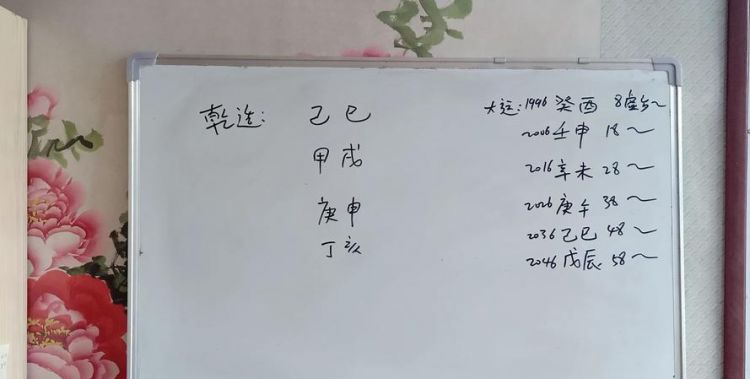 乾造: 己巳
甲戌
庚申
丁亥
大运: 1996 癸酉 8虚岁~
2006 壬申 18~
2016 辛未 28~
2026 庚午 38~
2036 己巳 48~
2046 戊辰 58~